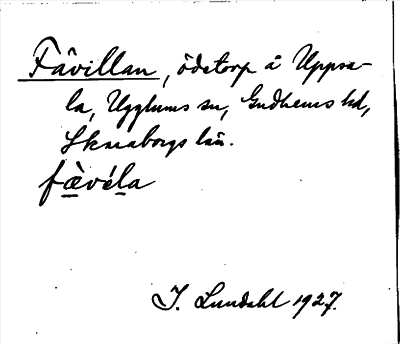 Fåvillan, ödetorp å Uppsa-
la, Ugglums sn, Gudhems hd,
Skaraborgs län.
fæ̀véla
I. Lundahl 1927.